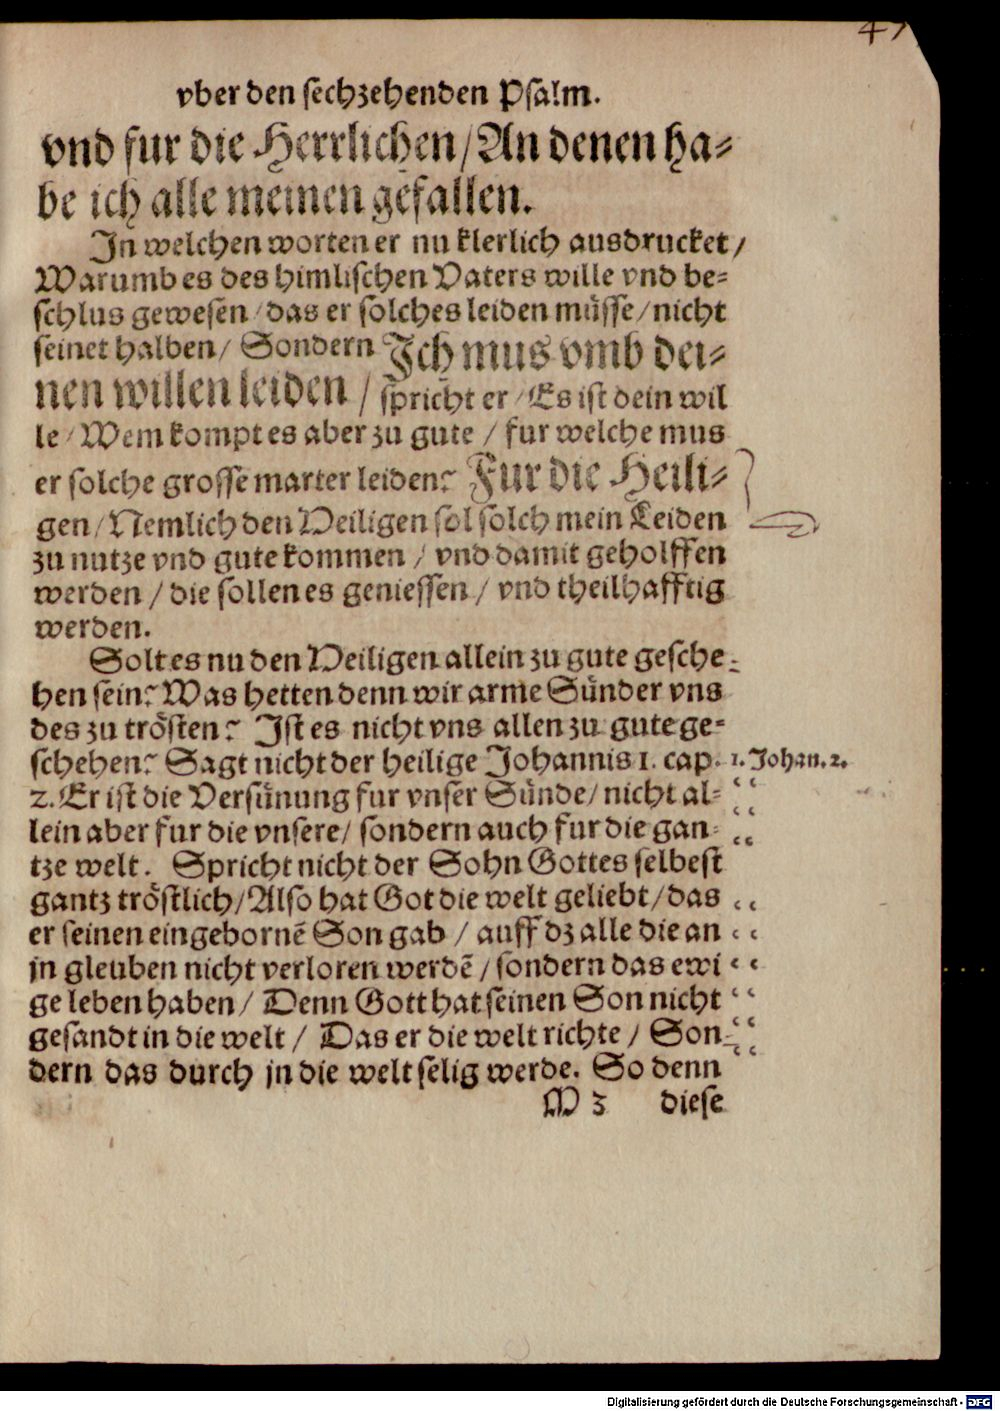 47
vber den sechzehenden Psalm.
vnd fur die Herrlichen/An denen ha⸗
be ich alle meinen gefallen.
In welchen worten er nu klerlich ausdrucket/
Warumb es des himlischen Vaters wille vnd be⸗
schlus gewesen/das er solches leiden müsse/nicht
seinet halben/ Sondern Ich mus vmb dei⸗
nen willen leiden/ spricht er/Es ist dein wil
le/Wem kompt es aber zu gute/ fur welche mus
er solche grosse marter leiden? Fur die Heili⸗
gen/Nemlich den Heiligen sol solch mein Leiden
zu nutze vnd gute kommen/ vnd damit geholffen
werden/ die sollen es geniessen/ vnd theilhafftig
werden.
Solt es nu den Heiligen allein zu gute gesche⸗
hen sein? Was hetten denn wir arme Sünder vns
des zu trösten? Ist es nicht vns allen zu gute ge⸗
schehen? Sagt nicht der heilige Johannis 1. cap. 1. Johan. 2.
2. Er ist die Versünung fur vnser Sünde/ nicht al⸗
lein aber fur die vnsere/ sondern auch fur die gan⸗
tze welt. Spricht nicht der Sohn Gottes selbest
gantz tröstlich/Also hat Got die welt geliebt/das
er seinen eingebornē Son gab/ auff dz alle die an
jn gleuben nicht verloren werdē/sondern das ewi
ge leben haben/ Denn Gott hat seinen Son nicht
gesandt in die welt/ Das er die welt richte/ Son⸗
dern das durch jn die welt selig werde. So denn
M 3 diese
Digitalisierung gefördert durch die Deutsche Forschungsgemeinschaft - DFG